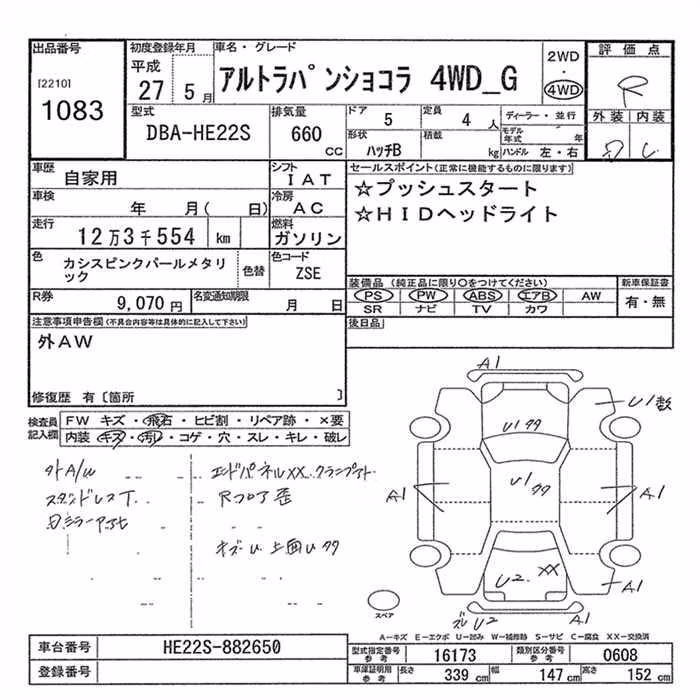 出品番号
[2210]
1083
初度登録年月
平成
27 5月
車名・グレード
アルトラパンショコラ 4WD_G
2WD
・
4WD
評価点
R
外装 内装
型式
DBA-HE22S
排気量
660
CC
ドア 5
定員 4人
形状 ハッチB
積載 kg
ディーラー・並行
モデル年式 年
ハンドル 左・右
車歴 自家用
シフト IAT
車検 年 月( 日)
冷房 AC
走行 12万3千554 km
燃料 ガソリン
色 カシスピンクパールメタリック
色替
色コード ZSE
R券 9,070円
名変通知期限 月 日
セールスポイント(正常に機能するものに限ります)
☆プッシュスタート
☆HIDヘッドライト
装備品 (純正品に限り○をつけてください)
PS PW ABS エアB AW
SR ナビ TV カワ
新車保証書
有・無
後日品
注意事項申告欄(不具合内容等は具体的に記入して下さい)
外AW
修復歴 有〔箇所 〕
検査員記入欄
FW キズ・飛石・ヒビ割・リペア跡・×要
内装 キズ・汚レ・コゲ・穴・スレ・キレ・破レ
外A/W
エンドパネルXX.
Rフロア歪
A1
U1
U1
U1
A1
A1
U2 XX
A1
U2
A1
スペア
A-キズ E-エクボ U-凹み W-補修跡 S-サビ C-腐食 XX-交換済
車台番号 HE22S-882650
登録番号
型式指定番号 参考 16173
類別区分番号 参考 0608
車庫証明用 参考 長さ 339cm 幅 147cm 高さ 152cm